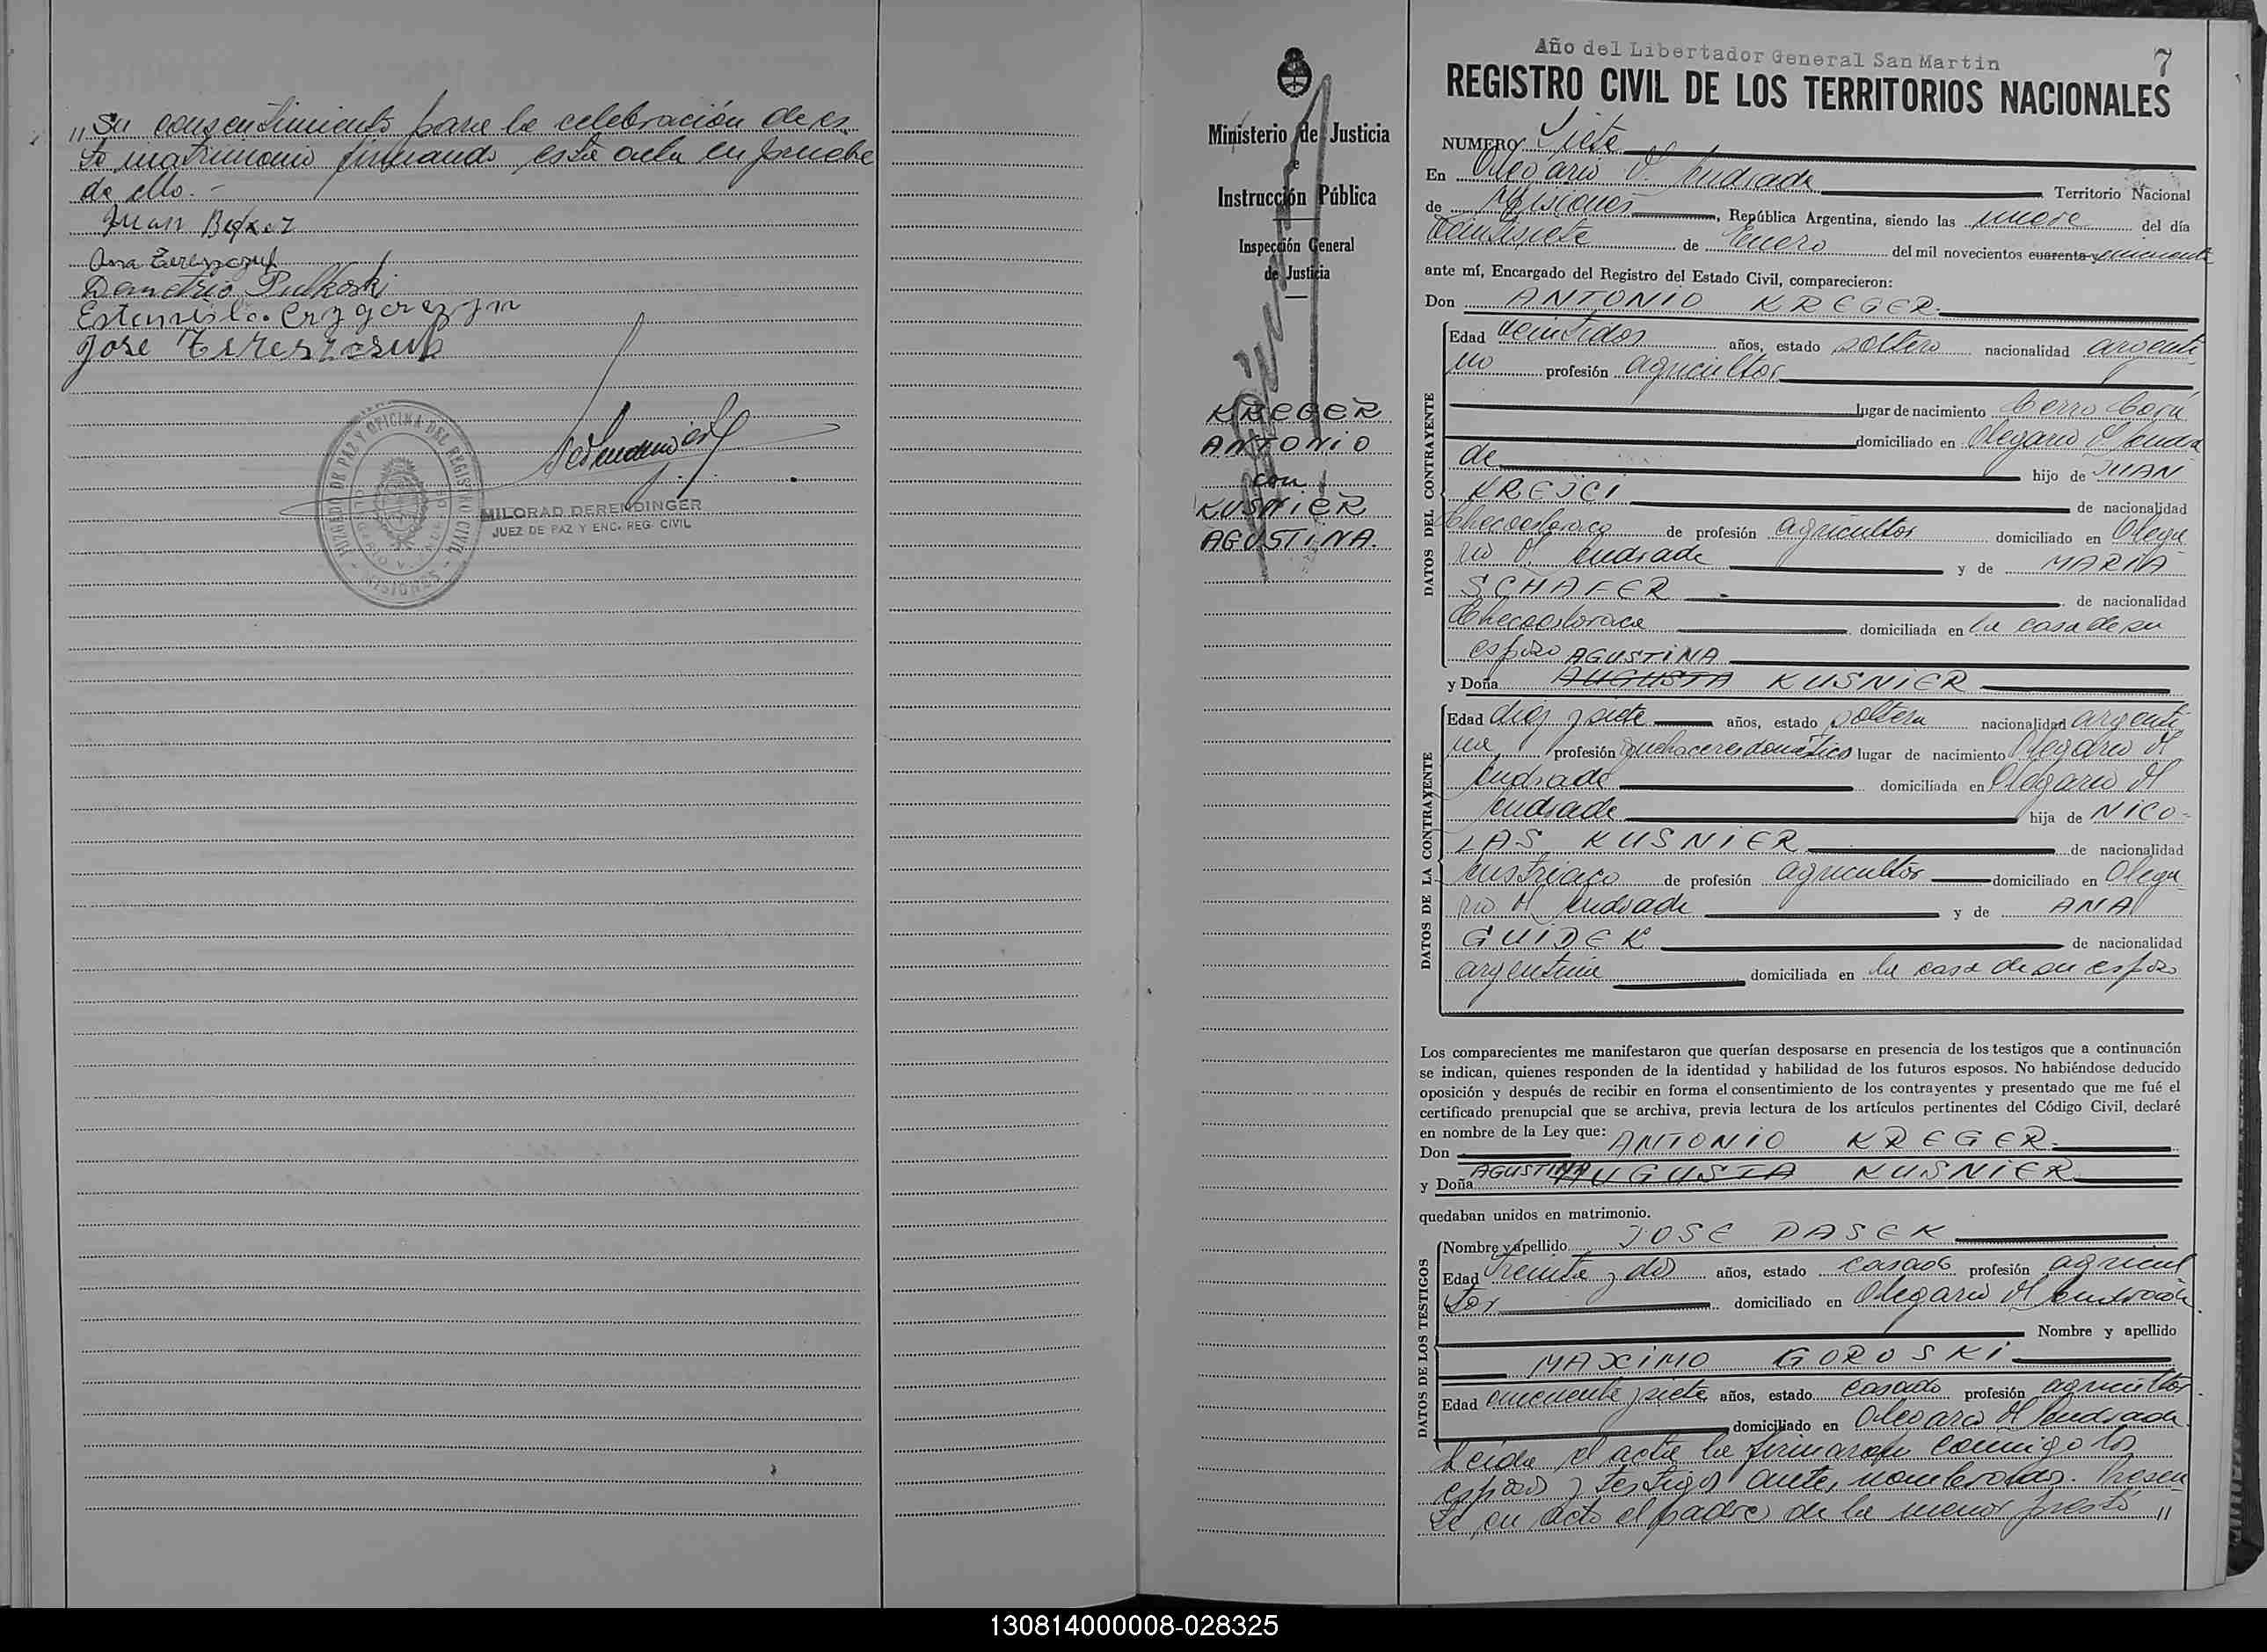 "Su consentimiento para la celebración de es-
te matrimonio firmando esta acta en prueba
de ello.-
Juan
Ana Tereszczuk
Demetrio Pulkoski
Estanisla
Jose Tereszczuk
JUZGADO DE PAZ Y OFICINA DEL REGISTRO CIVIL
- MISIONES -
MILORAD DERENDINGER
JUEZ DE PAZ Y ENC. REG. CIVIL
Ministerio de Justicia
e
Instrucción Pública
Inspección General
de Justicia
KREGER
ANTONIO
con
KUSNIER
AGUSTINA.
Año del Libertador General San Martin
7
REGISTRO CIVIL DE LOS TERRITORIOS NACIONALES
NUMERO Siete
En Olegario V. Andrade Territorio Nacional
de Misiones, República Argentina, siendo las nueve del día
veintisiete de Enero del mil novecientos cuarenta y cincuenta
ante mí, Encargado del Registro del Estado Civil, comparecieron:
Don ANTONIO KREGER
DATOS DEL CONTRAYENTE
Edad veintidos años, estado soltero nacionalidad argenti
no profesión agricultor
lugar de nacimiento Cerro Corá
domiciliado en Olegario V. Andra
de hijo de JUAN
KREJCI de nacionalidad
Checoeslovaca de profesión agricultor domiciliado en Olega
rio V. Andrade y de MARIA
SCHAFER de nacionalidad
Checoeslovaca domiciliada en la casa de su
esposo AGUSTINA
y Doña AUGUSTA KUSNIER
DATOS DE LA CONTRAYENTE
Edad diez y siete años, estado soltera nacionalidad argenti
na profesión quehaceres domésticos lugar de nacimiento Olegario V.
Andrade domiciliada en Olegario V.
Andrade hija de NICO-
LAS KUSNIER de nacionalidad
austriaco de profesión agricultor domiciliado en Olega
rio V. Andrade y de ANA
GUIDEK de nacionalidad
argentina domiciliada en la casa de su esposo
Los comparecientes me manifestaron que querían desposarse en presencia de los testigos que a continuación
se indican, quienes responden de la identidad y habilidad de los futuros esposos. No habiéndose deducido
oposición y después de recibir en forma el consentimiento de los contrayentes y presentado que me fué el
certificado prenupcial que se archiva, previa lectura de los artículos pertinentes del Código Civil, declaré
en nombre de la Ley que:
Don ANTONIO KREGER
y Doña AGUSTINA AUGUSTA KUSNIER
quedaban unidos en matrimonio.
DATOS DE LOS TESTIGOS
Nombre y apellido JOSE DASEK
Edad treinta y dos años, estado casado profesión agricul
tor domiciliado en Olegario V. Andrade
Nombre y apellido
MAXIMO GOROSKI
Edad cincuenta y siete años, estado casado profesión agricultor
domiciliado en Olegario V. Andrade
Leida el acta la firmaron conmigo los
esposos y testigos antes nombrados. Presen
te en acto el padre de la menor prestó "
130814000008-028325